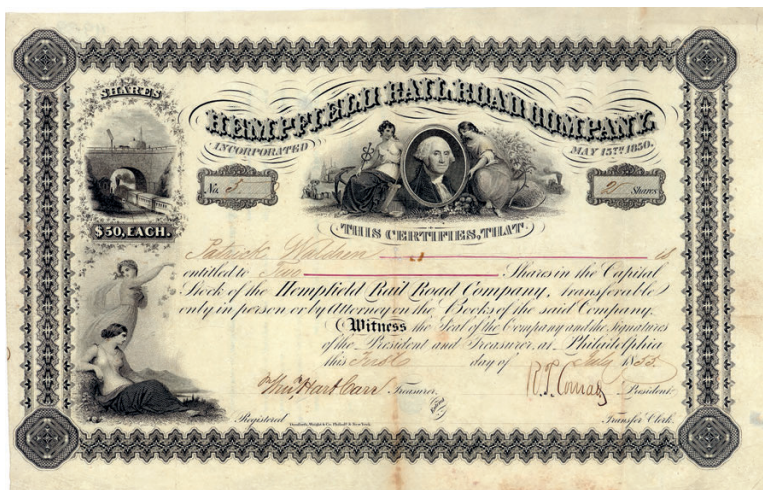 SHARES
HEMPFIELD RAIL ROAD COMPANY.
INCORPORATED MAY 15TH 1850.
No. 2 Shares
$50, EACH.
THIS CERTIFIES, THAT
Patrick is
entitled to Two Shares in the Capital
Stock of the Hempfield Rail Road Company, transferable
only in person or by Attorney on the Books of the said Company.
Witness the Seal of the Company and the Signatures
of the President and Treasurer at Philadelphia
this First day of July 1855.
Treasurer. President.
Registered Transfer Clerk.